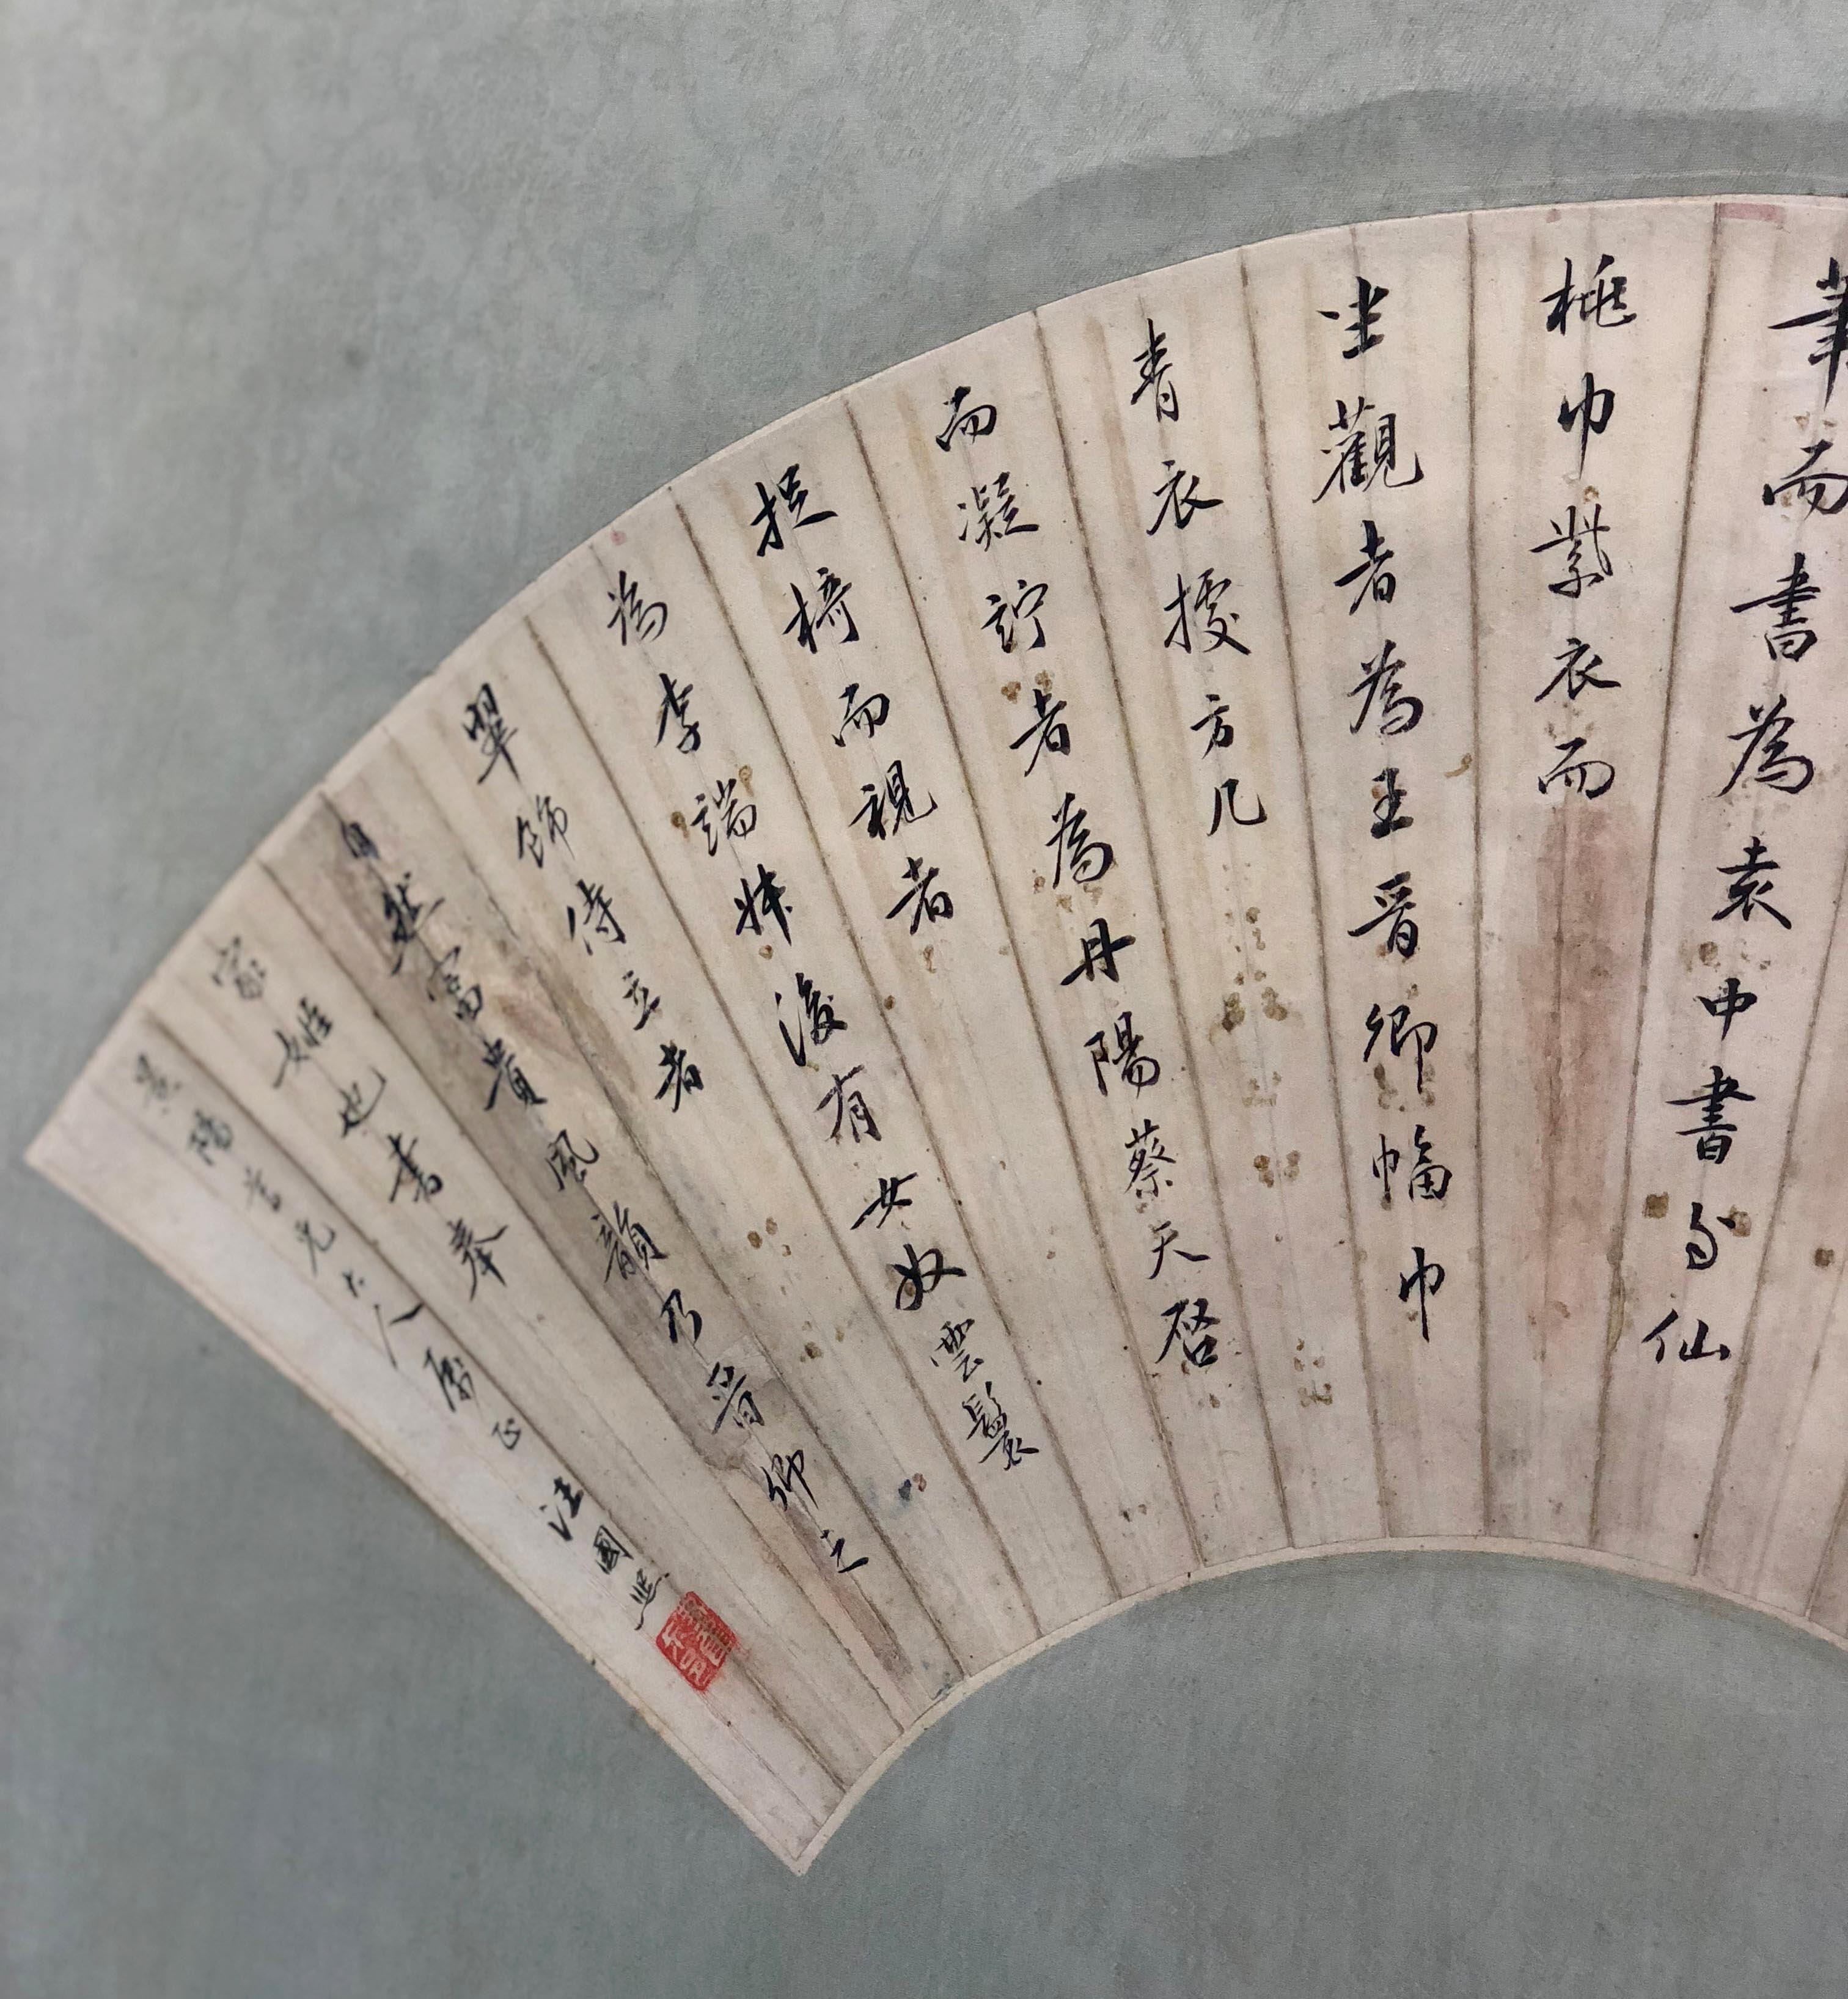 而書為
袁中書多仙
桃巾紫衣而
坐觀者為王晉卿幅巾
青衣據方几
而凝竚者為丹陽蔡天啓
捉椅而視者
為李端牀後有女奴雲鬟
翠飾侍立者
自然富貴風韻乃晉卿之
家姬也書奉
陽言兄大人屬正 汪國